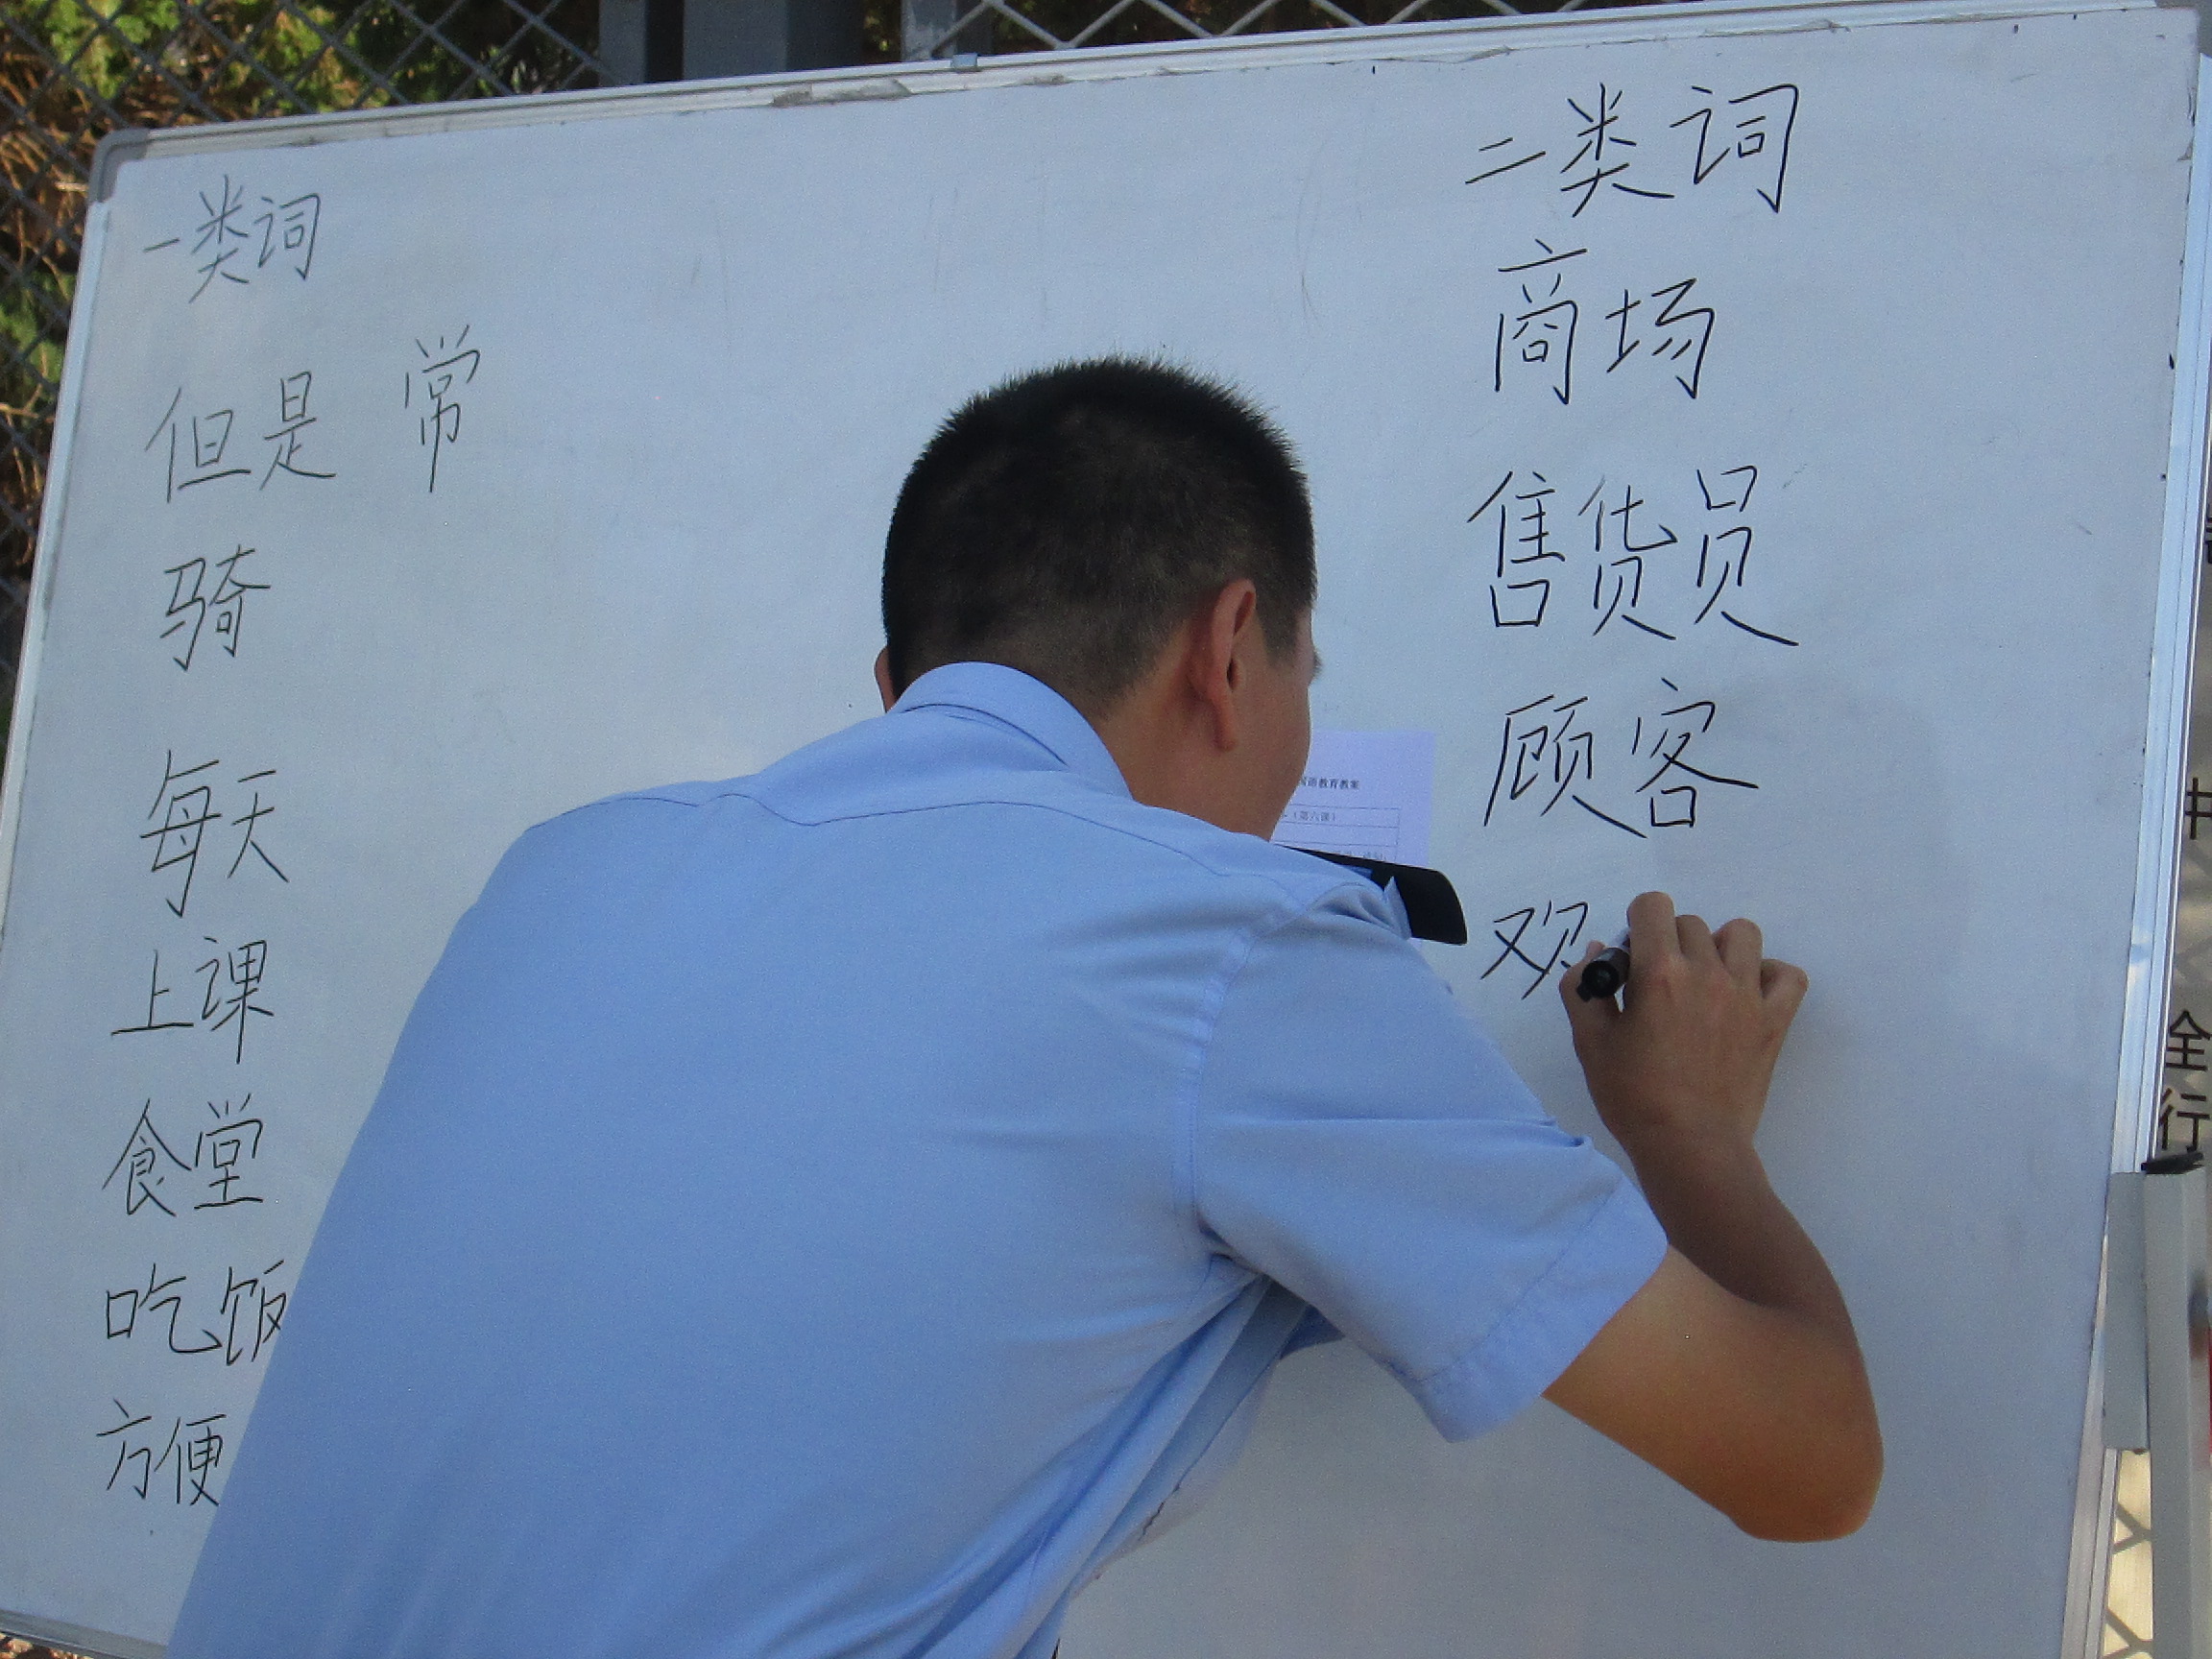 一类词
但是 常
骑
每天
上课
食堂
吃饭
方便
二类词
商场
售货员
顾客
观
语教育教案
（第六课）
全
行